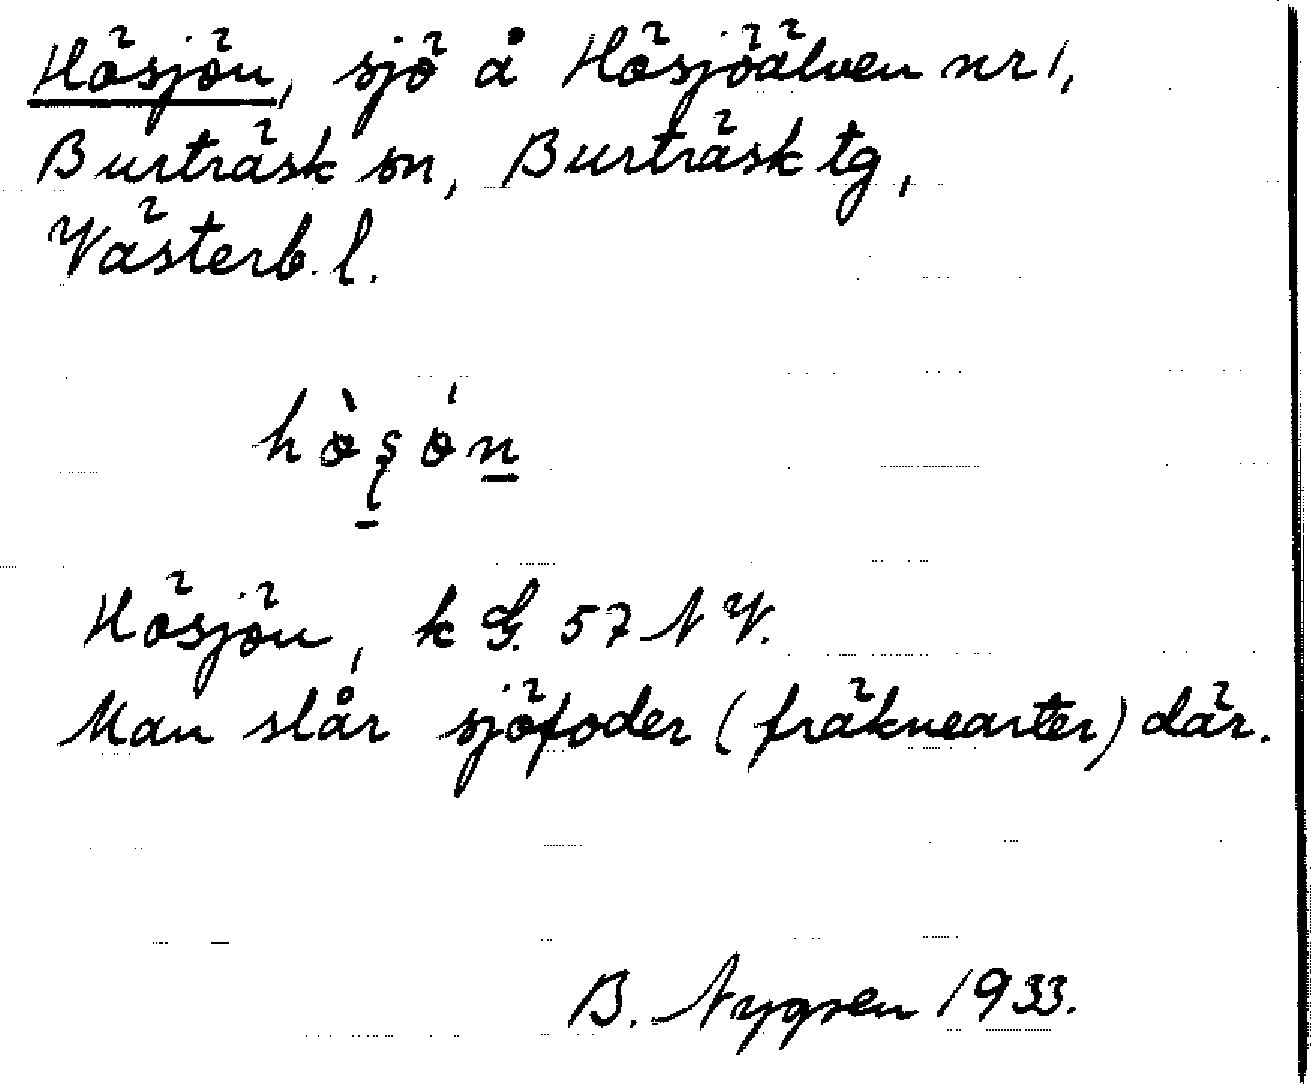 Hösjön, sjö å Hösjöälven nr 1,
Burträsk sn, Burträsk tg,
Västerb. l.
Hösjön, k G. 57 N V.
Man slår sjöfoder (fräknearter) där.
B. 1933.